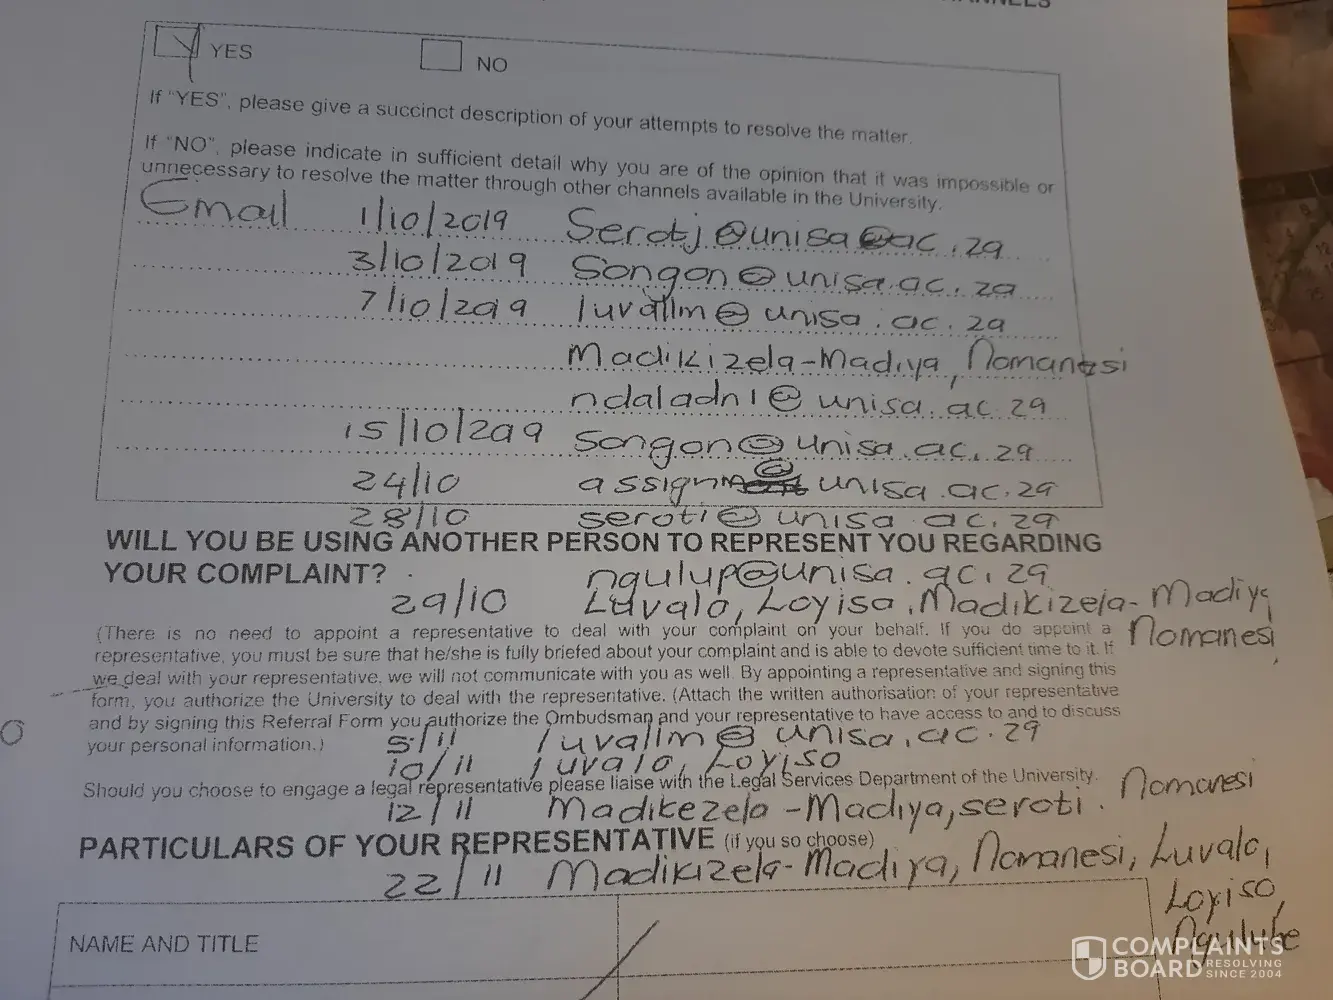 YES NO
If "YES", please give a succinct description of your attempts to resolve the matter.
If "NO", please indicate in sufficient detail why you are of the opinion that it was impossible or
unnecessary to resolve the matter through other channels available in the University.
Email 1/10/2019 Serotj@unisa@ac.za
3/10/2019 Songon@unisa.ac.za
7/10/2019 luvallm@unisa.ac.za
Madikizela-Madiya, Nomanesi
ndaladn1@unisa.ac.za
15/10/2019 Songon@unisa.ac.za
24/10 assign@unisa.ac.za
28/10 seroti@unisa.ac.za
WILL YOU BE USING ANOTHER PERSON TO REPRESENT YOU REGARDING
YOUR COMPLAINT?
ngulup@unisa.ac.za
29/10 Luvalo, Loyisa, Madikizela-Madiya
Nomanesi
(There is no need to appoint a representative to deal with your complaint on your behalf. If you do appoint a
representative, you must be sure that he/she is fully briefed about your complaint and is able to devote sufficient time to it. If
we deal with your representative, we will not communicate with you as well. By appointing a representative and signing this
form, you authorize the University to deal with the representative. (Attach the written authorisation of your representative
and by signing this Referral Form you authorize the Ombudsman and your representative to have access to and to discuss
your personal information.)
5/11 luvalim@unisa.ac.za
10/11 luvalo, Loyiso
Should you choose to engage a legal representative please liaise with the Legal Services Department of the University.
12/11 Madikezela-Madiya, seroti. Nomanesi
PARTICULARS OF YOUR REPRESENTATIVE (if you so choose)
22/11 Madikizela-Madiya, Nomanesi, Luvalo,
Loyiso,
Ngulube
NAME AND TITLE
COMPLAINTS
BOARD RESOLVING
SINCE 2004